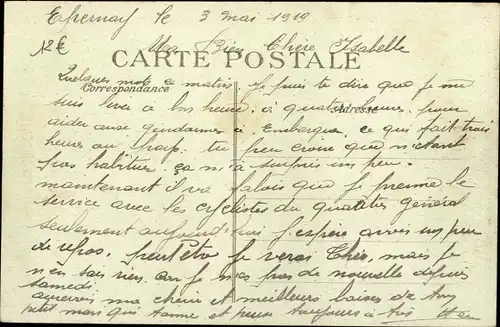 Epernay le 3 mai 1919
Ma Bien Chère Isabelle
CARTE POSTALE
Correspondance
Adresse
Quelques mots ce matin. Je puis te dire que je me
suis lever a bon heure, à quatre heures, pour
aider aux gendarmes à Embarquer, ce qui fait trois
heures au trap. tu peu croire que n'etant
pas habituer ça m'a surpris un peu.
maintenant il va falois que je prenne le
service avec les cyclistes du quartier général
seulement aujourd'hui j'espère avoir un peu
de repos. peut être je verai Thés, mais je
n'en sais rien. car je n'es pas de nouvelle depuis
samedi.
aurevoir ma chérie et meilleurs baisers de ton
petit mari qui t'aime et pense toujours à toi